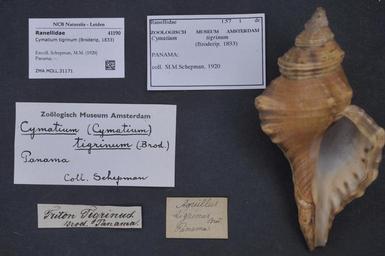 NCB Naturalis - Leiden
Ranellidae 41190
Cymatium tigrinum (Broderip, 1833)
Excoll. Schepman, M.M. (1920)
Panama: -.
ZMA MOLL.31171
Ranellidae 157 1 dr
ZOOLOGISCH MUSEUM AMSTERDAM
Cymatium tigrinum
(Broderip, 1833)
PANAMA:
coll. M.M.Schepman, 1920
Zoölogisch Museum Amsterdam
Cymatium (Cymatium)
tigrinum (Brod.)
Panama
Coll. Schepman
Triton Tigrinus
Brod. Panama.
tigrinus
Panama